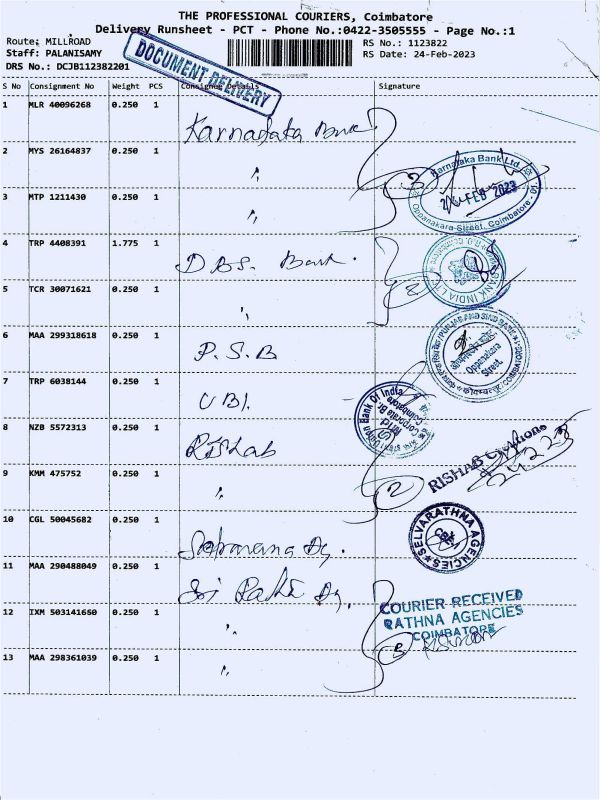 THE PROFESSIONAL COURIERS, Coimbatore
Delivery Runsheet - PCT - Phone No.:0422-3505555 - Page No.:1
Route: MILLROAD
RS No.: 1123822
Staff: PALANISAMY
RS Date: 24-Feb-2023
DRS No.: DCJB112382201
DOCUMENT DELIVERY
S No Consignment No Weight PCS Consignee Details Signature
1 MLR 40096268 0.250 1 Karnataka Bank
2 MYS 26164837 0.250 1 "
Karnataka Bank Ltd.
24 FEB 2023
Oppanakara Street, Coimbatore-01
3
3 MTP 1211430 0.250 1 "
4 TRP 4408391 1.775 1 DBS. Bank.
BANK INDIA LTD
5 TCR 30071621 0.250 1 "
2
6 MAA 299318618 0.250 1 P.S.B
PUNJAB AND SIND BANK
Oppanakara
Street
COIMBATORE
7 TRP 6038144 0.250 1 UBI.
Union Bank Of India
Corporate Br.
Coimbatore
8 NZB 5572313 0.250 1 Rishab
RISHAB
9 KMM 475752 0.250 1 "
2
10 CGL 50045682 0.250 1
SELVARATHMA AGENCIES
11 MAA 290488049 0.250 1 Sri
COURIER RECEIVED
RATHNA AGENCIES
COIMBATORE
12 IXM 503141660 0.250 1 "
13 MAA 298361039 0.250 1 "